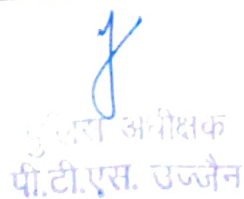 पुलिस अधीक्षक
पी.टी.एस. उज्जैन